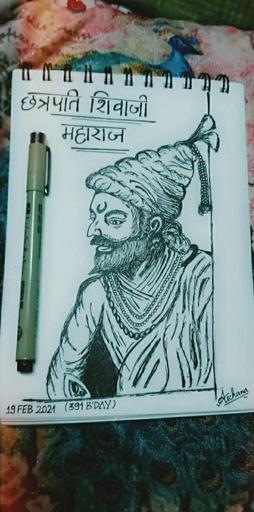 छत्रपति शिवाजी
महाराज
Archana
19 FEB 2021 (391 B'DAY)